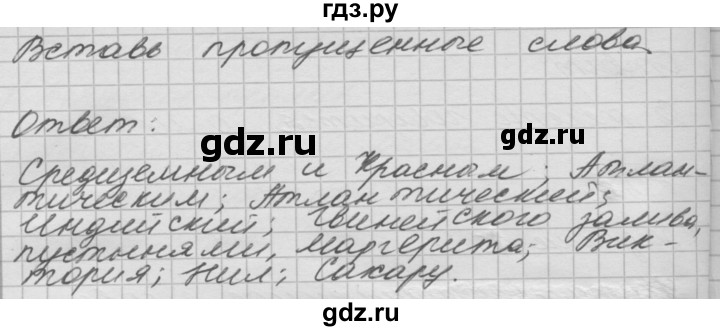 гдз.ру
Вставь пропущенные слова
Ответ:
gdz.ru
gdz.ru
Средиземным и Красным; Атлан-
тическим; Атлантический;
Индийский; Гвинейского залива,
пустынями, Маргерита; Вик-
тория; Нил; Сахару.
gdz.ru
gdz.ru